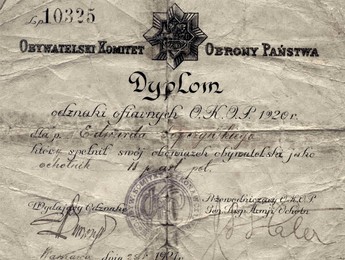 Lp. 10325
OBYWATELSKI KOMITET OBRONY PAŃSTWA
Dyplom
odznaki ofiarnych O.K.O.P. 1920 r.
dla p. Edwarda
który spełnił swój obowiązek obywatelski jako
ochotnik
Wydający Odznakę
Przewodniczący O.K.O.P.
Gen. Insp. Armji Ochotn.
Warszawa dnia 1921 r.